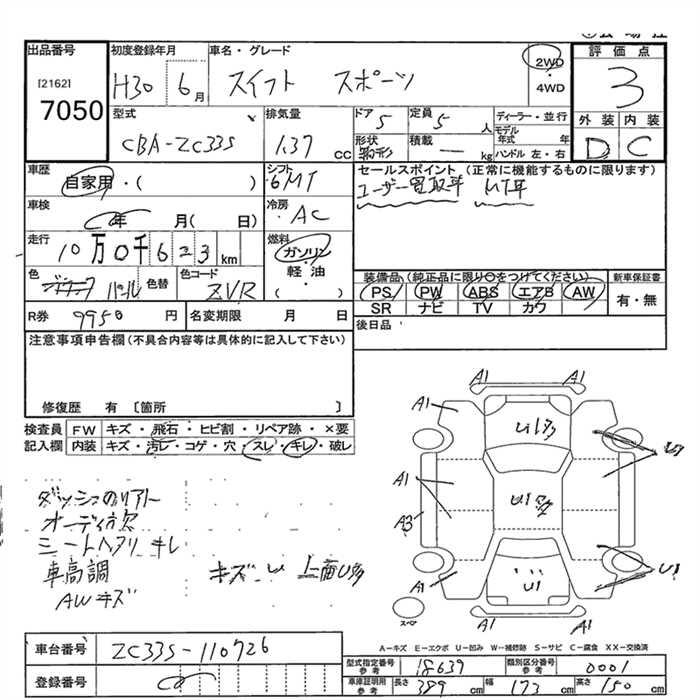 出品番号 初度登録年月 車名・グレード 2WD 評価点
[2162] H30 6月 スイフト スポーツ ・4WD 3
7050 型式 排気量 ドア 5 定員 5人 ディーラー・並行 外装 内装
CBA-ZC33S 1.37cc 形状 積載 ― kg モデル年式 年 D C
ハンドル 左・右
車歴 自家用・( ) シフト 6MT セールスポイント (正常に機能するものに限ります)
ユーザー買取車
車検 年 月( 日) 冷房 AC
走行 10万0千623km 燃料 ガソリン
軽油
( ・ )
色 パール 色替 色コード ZVR 装備品(純正品に限り○をつけてください) 新車保証書
PS PW ABS エアB AW 有・無
SR ナビ TV カワ
R券 9950円 名変期限 月 日 後日品
注意事項申告欄(不具合内容等は具体的に記入して下さい)
修復歴 有〔箇所 〕
検査員 FW キズ・飛石・ヒビ割・リペア跡・×要
記入欄 内装 キズ・汚レ・コゲ・穴・スレ・キレ・破レ
A1 A1
A1
A1
A3
A1
A1 A1
U1
スペア
ダッシュ
オーディオ欠
シートヘタリ キレ
車高調 キズ
AWキズ
上面U多
A-キズ E-エクボ U-凹み W-補修跡 S-サビ C-腐食 XX-交換済
車台番号 ZC33S-110726
登録番号
型式指定番号 参考 18639 類別区分番号 参考 0001
車庫証明用 参考 長さ 389cm 幅 173cm 高さ 150cm